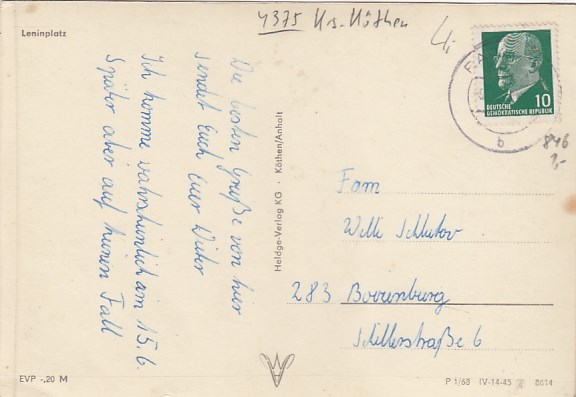 4375 Krs. Köthen
Leninplatz
Die besten Grüße von hier
sendet Euch Euer Dieter
Ich komme wahrscheinlich am 15.6.
Später aber auf keinen Fall
Heldge-Verlag KG · Köthen/Anhalt
DEUTSCHE
DEMOKRATISCHE REPUBLIK
10
b
846
1,-
Fam
Willi
283 Boizenburg
Schillerstraße 6
EVP -,20 M
P 1/68 IV-14-45 8614